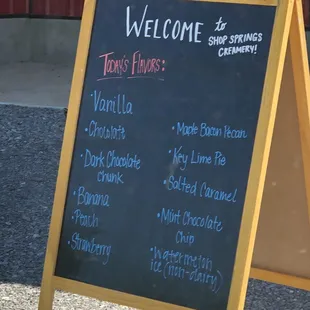 WELCOME to
SHOP SPRINGS
CREAMERY!
TODAY'S FLAVORS:
• Vanilla
• Chocolate
• Dark Chocolate
chunk
• Banana
• Peach
• Strawberry
• Maple Bacon Pecan
• Key Lime Pie
• Salted Caramel
• Mint Chocolate
Chip
• Watermelon
ice (non-dairy)